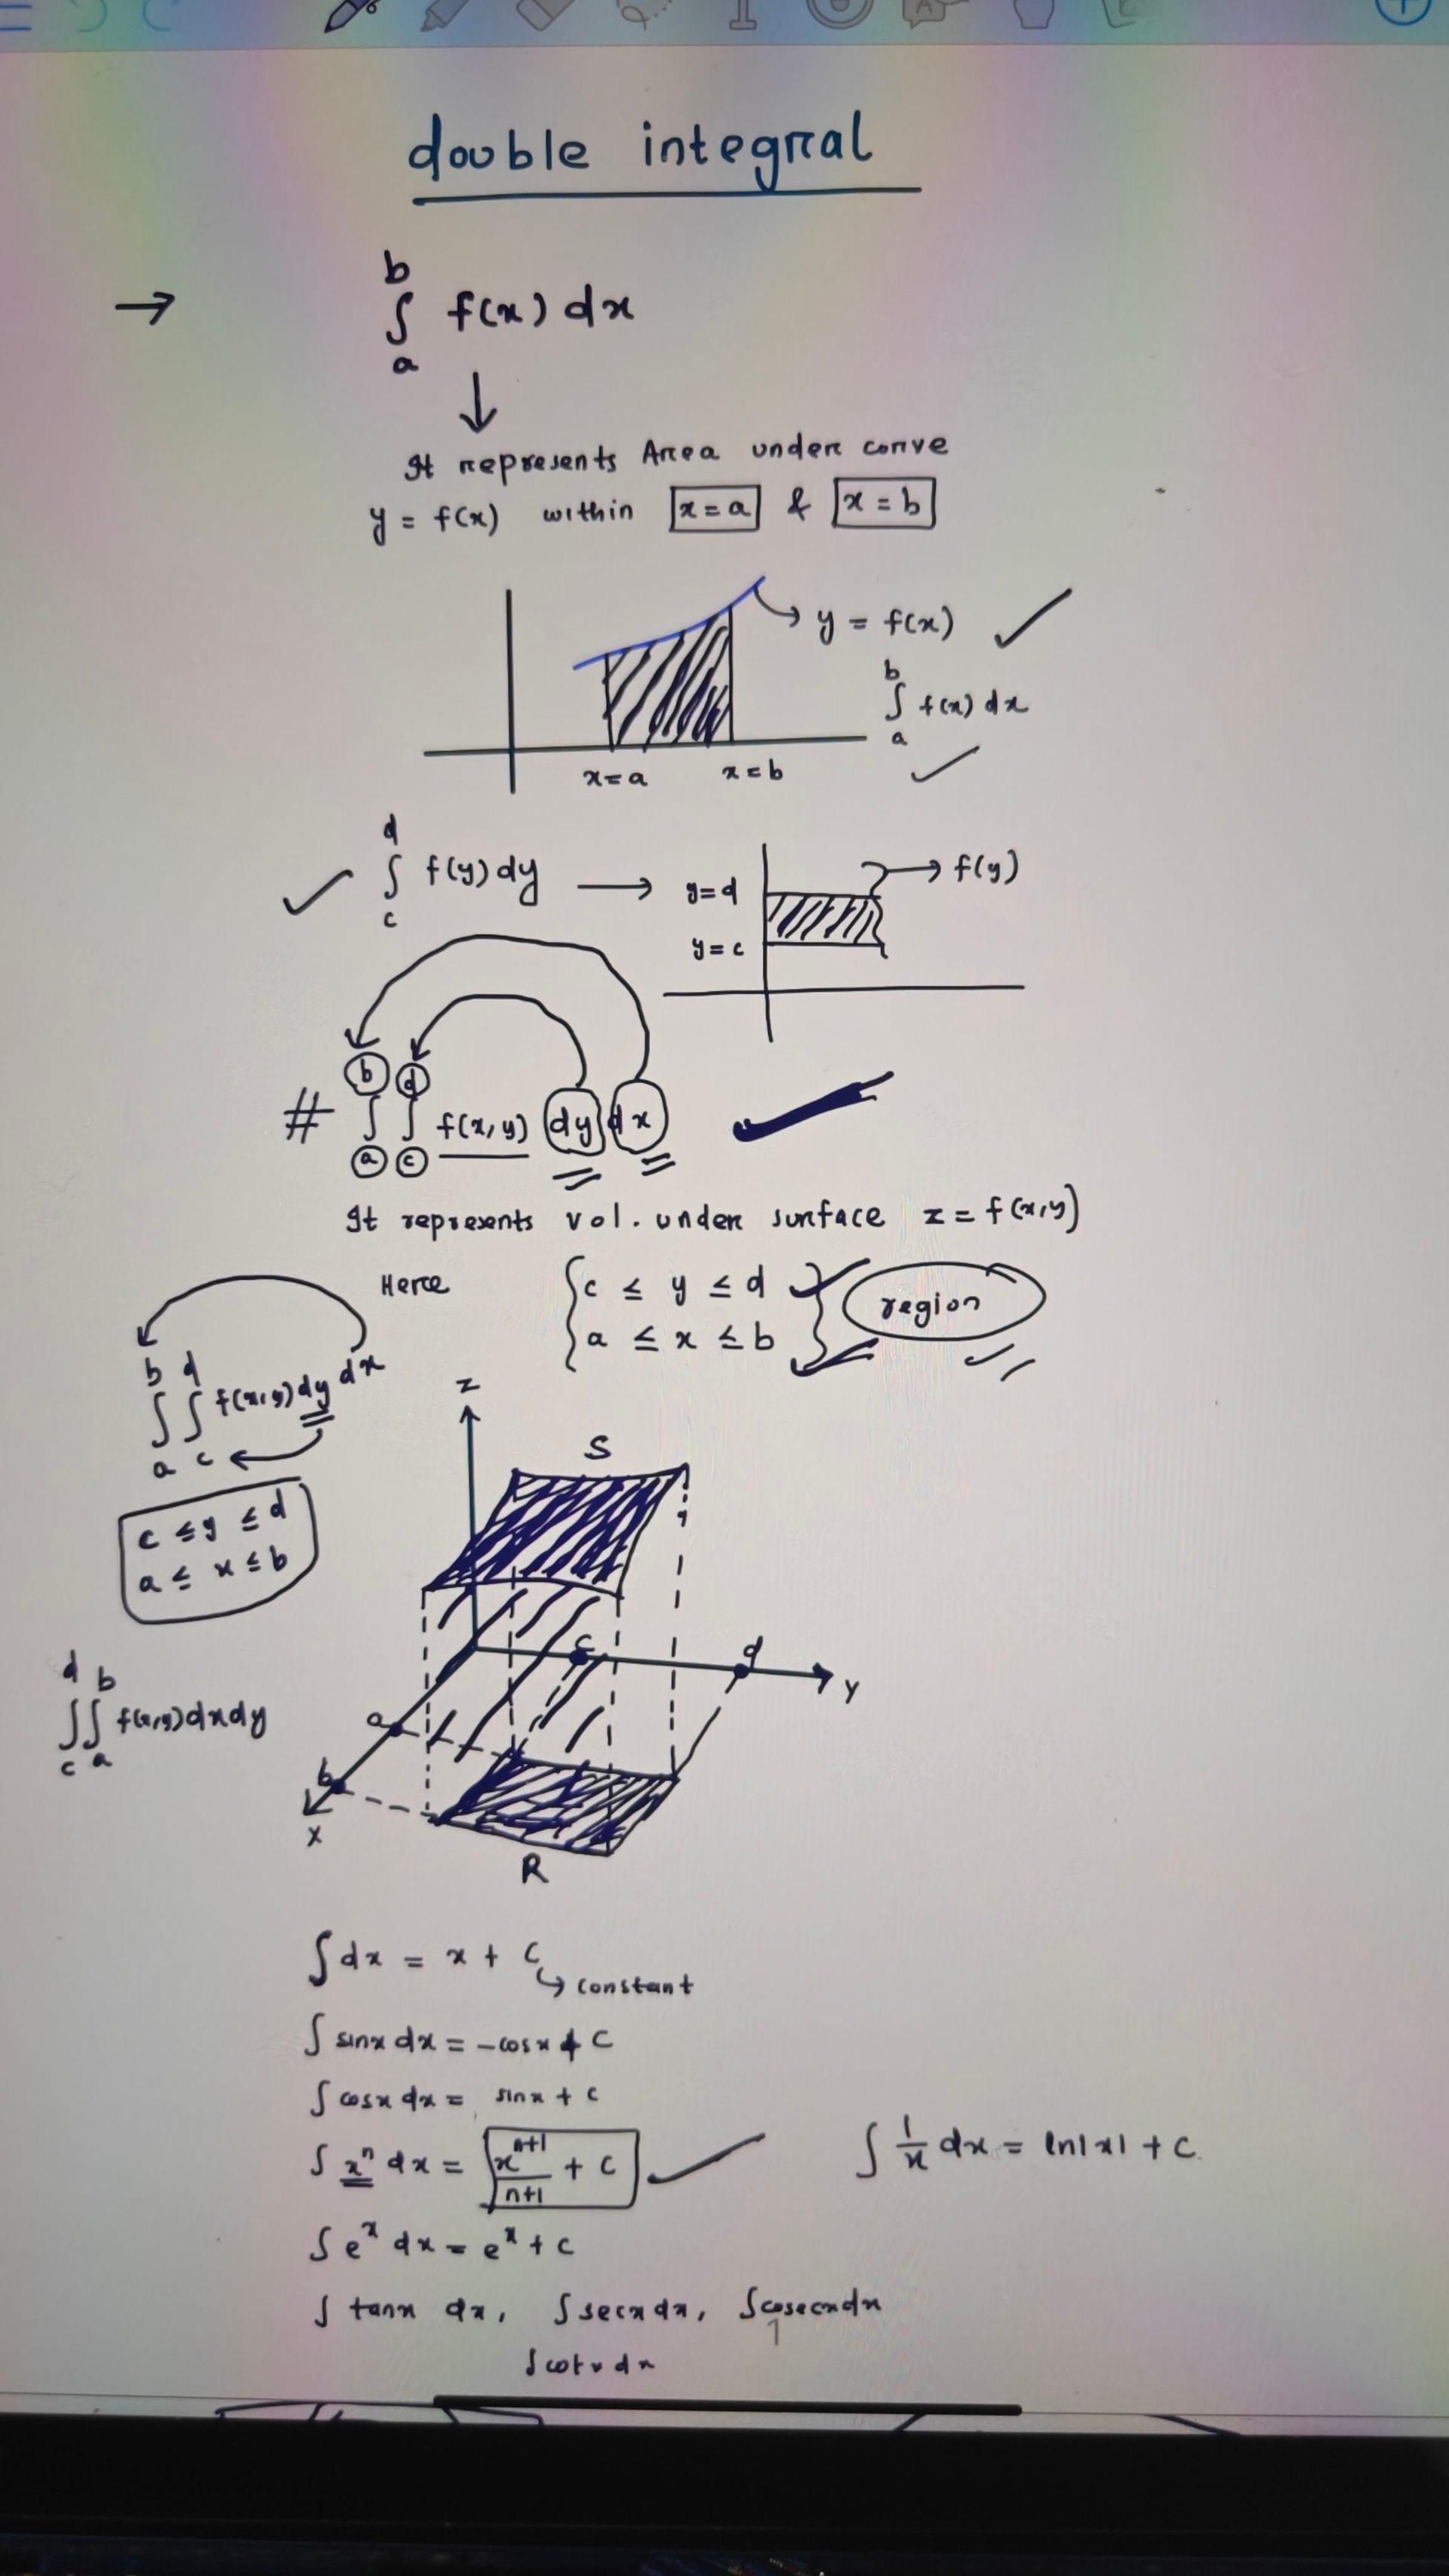 double integral
→ ∫_a^b f(x) dx
↓
It represents Area under curve
y = f(x) within x = a & x = b
→ y = f(x)
∫_a^b f(x) dx
x = a x = b
∫_c^d f(y) dy → y = d → f(y)
y = c
# ∫_a^b ∫_c^d f(x, y) dy dx
It represents vol. under surface z = f(x, y)
Here { c ≤ y ≤ d
a ≤ x ≤ b } region
∫_a^b ∫_c^d f(x, y) dy dx
c ≤ y ≤ d
a ≤ x ≤ b
z
S
c d
y
a
b
x
R
∫_c^d ∫_a^b f(x, y) dx dy
∫ dx = x + C
↳ constant
∫ sinx dx = -cosx + C
∫ cosx dx = sinx + c
∫ x^n dx = x^{n+1}/(n+1) + C
∫ 1/x dx = ln|x| + C.
∫ e^x dx = e^x + C
∫ tanx dx, ∫ secx dx, ∫ cosecx dx
1
∫ cotx dx